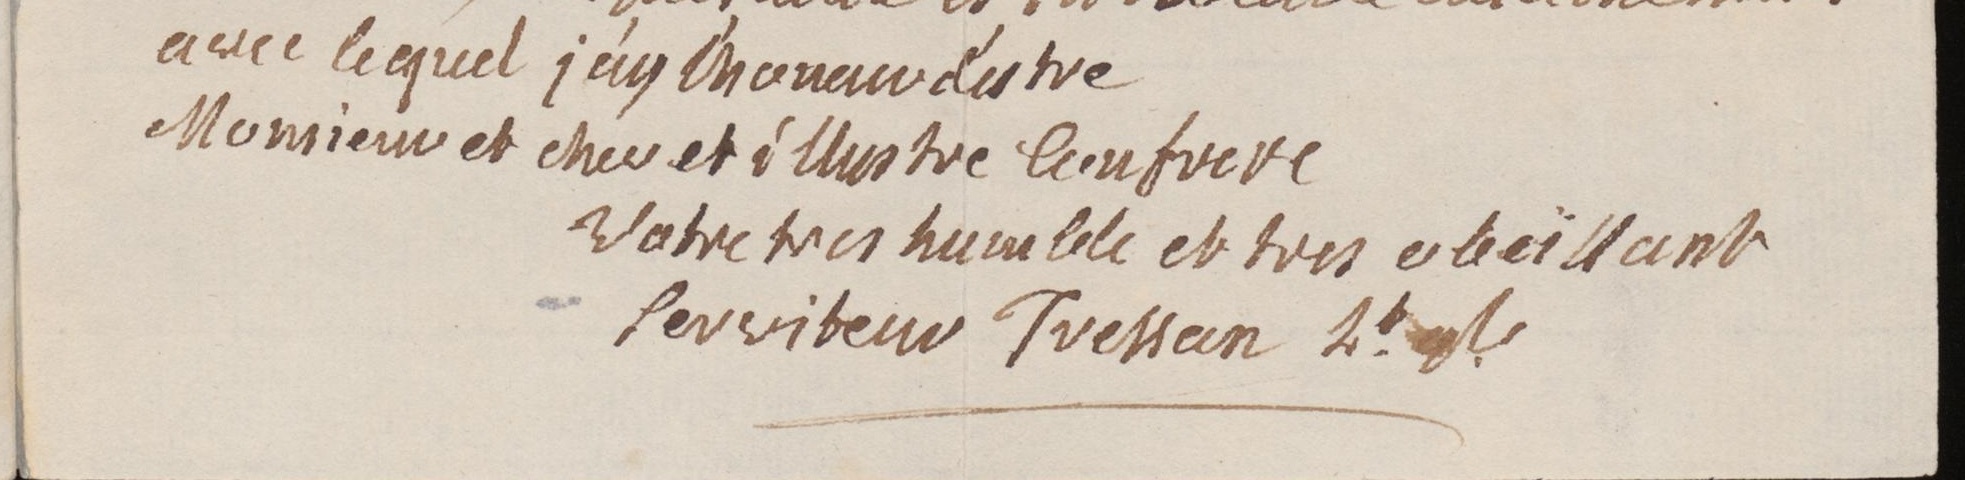 avec lequel j'ay lhoneur d'estre
Monsieur et cher et illustre Confrere
Votre tres humble et tres obeïssant
Serviteur Tressan Lt. gl.